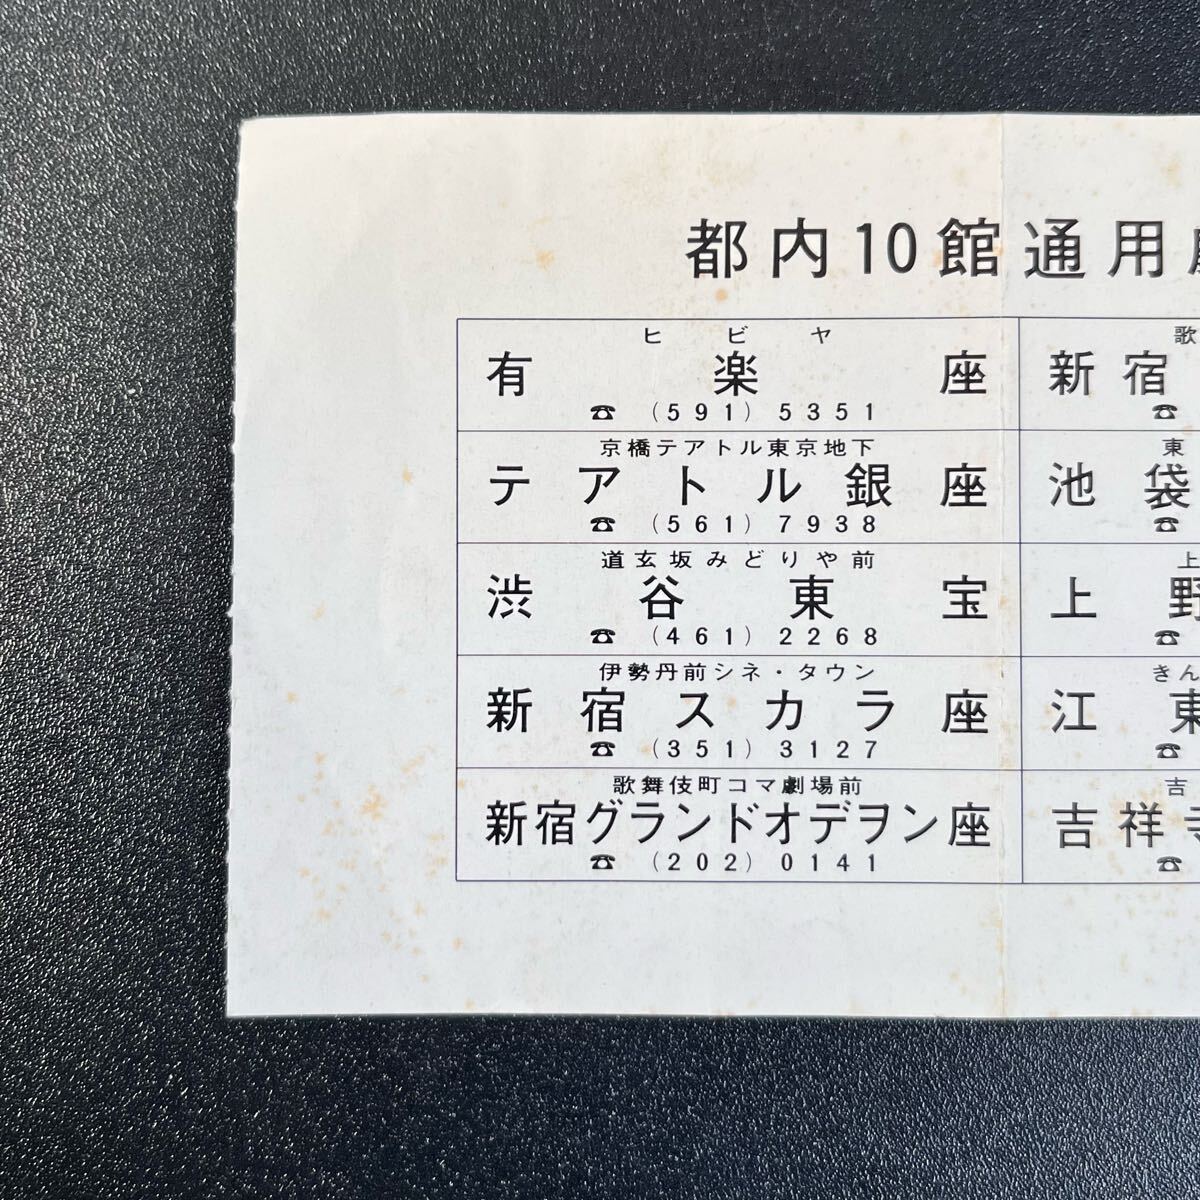 都内10館通用
ヒビヤ
有楽座
☎ (591) 5351
京橋テアトル東京地下
テアトル銀座
☎ (561) 7938
道玄坂みどりや前
渋谷東宝
☎ (461) 2268
伊勢丹前シネ・タウン
新宿スカラ座
☎ (351) 3127
歌舞伎町コマ劇場前
新宿グランドオデヲン座
☎ (202) 0141
歌
新宿
☎
東
池袋
☎
上
上野
☎
きん
江東
☎
吉
吉祥寺
☎